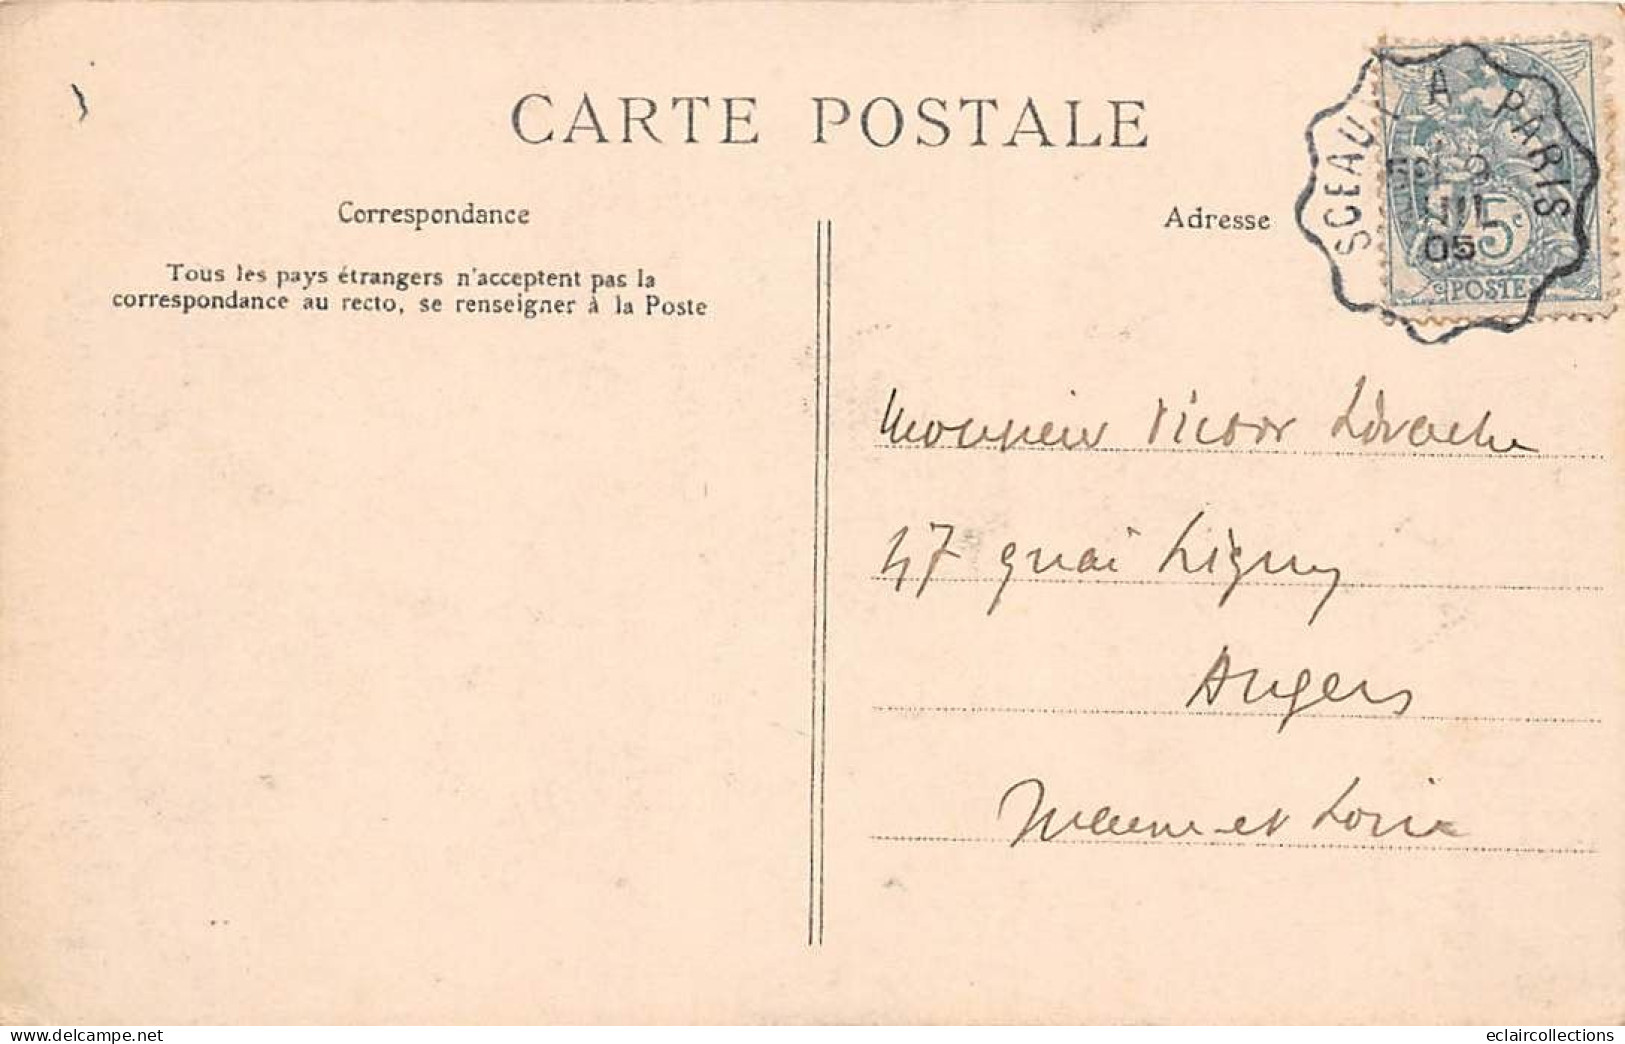 CARTE POSTALE
SCEAUX A PARIS
JUIL
05
5c
POSTES
Correspondance
Adresse
Tous les pays étrangers n'acceptent pas la
correspondance au recto, se renseigner à la Poste
Monsieur Victor
47 quai Ligny
Angers
Maine-et Loire
www.delcampe.net
eclaircollections